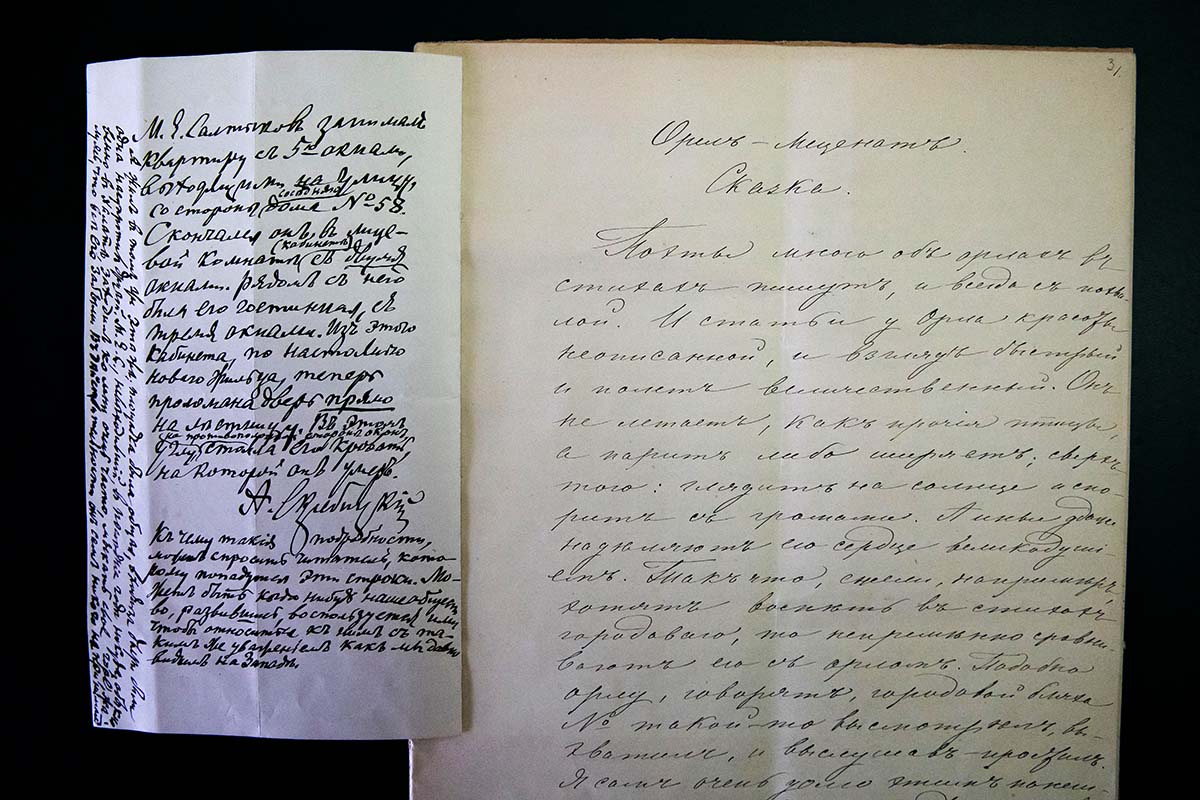 М. Е. Салтыковъ занималъ
квартиру съ 5ю окнами,
выходящими на улицу,
со стороны сосѣдняго дома № 58.
Скончался онъ въ лице-
вой комнатѣ (кабинетъ) съ двумя
окнами. Рядомъ съ ней
была его гостинная, съ
тремя окнами. Изъ этого
кабинета, по настоянію
новаго жильца, теперь
проломана дверь прямо
на лѣстницу. Въ этомъ
углу стояла его кровать,
на которой онъ умеръ.
А. Скребицкій
Къ чему такія подробности,
можетъ спросить читатель, кото-
рому попадутся эти строки. Мо-
жетъ быть когда нибудь наше общест-
во, развившись, воспользуется ими,
чтобы относиться къ нимъ съ та-
кимъ же уваженіемъ какъ мы давно
видимъ на Западѣ.
31.
Орелъ-Меценатъ.
Сказка.
Поэты много объ орлахъ въ
стихахъ пишутъ, и всегда съ похва-
лой. И статьи у орла красоты
неописанной, и взглядъ быстрый
и полетъ величественный. Онъ
не летаетъ, какъ прочія птицы,
а паритъ либо ширяетъ; сверхъ
того: глядитъ на солнце и спо-
ритъ съ громами. А иные даже
надѣляютъ его сердце великодуші-
емъ. Такъ что, если, напримѣръ
хотятъ воспѣть въ стихахъ
городоваго, то непремѣнно сравни-
ваютъ его съ орломъ. Подобно
орлу, говорятъ, городовой бляха
№ такой-то высмотрѣлъ, вы-
хватилъ, и выслушавъ - простилъ.
Я самъ очень долго этимъ панеги-